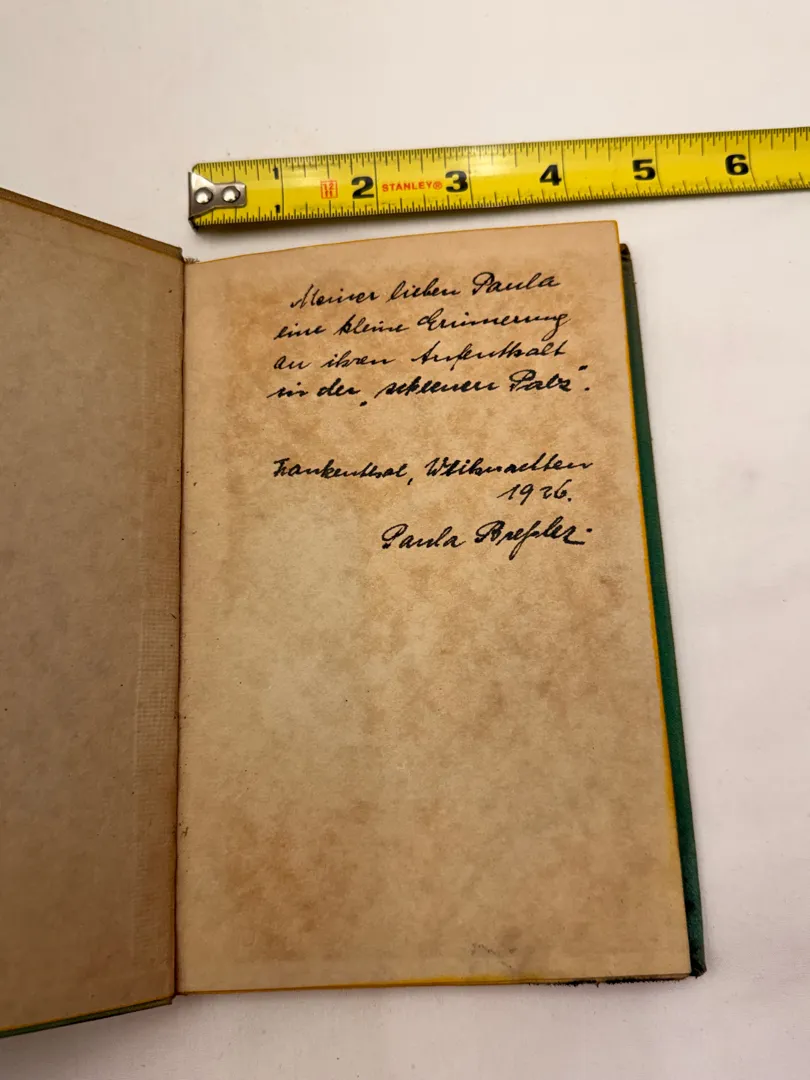 1 2 STANLEY® 3 4 5 6
1
Meiner lieben Paula
eine kleine Erinnerung
an ihren Aufenthalt
in der „scheenen Palz".
Frankenthal, Weihnachten
1936.
Paula Breßler